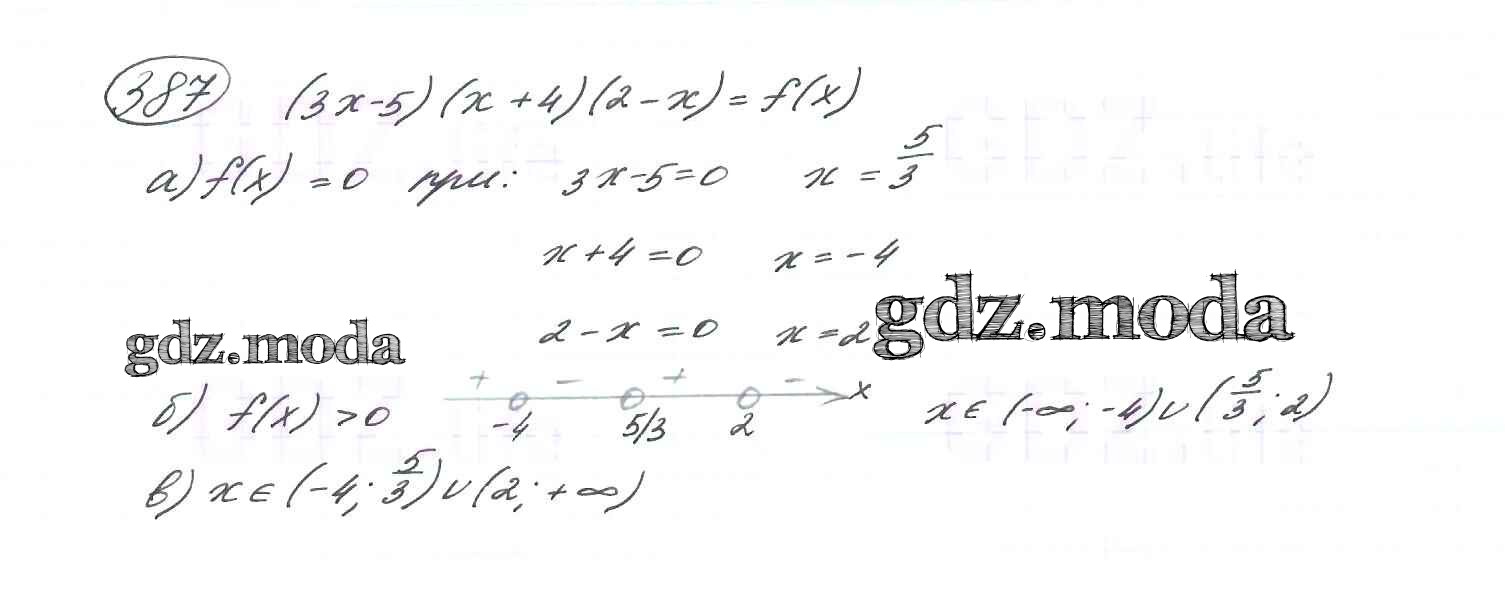 387 (3x-5)(x+4)(2-x)=f(x)
а) f(x)=0 при: 3x-5=0 x=5/3
x+4=0 x=-4
2-x=0 x=2
gdz.moda gdz.moda
б) f(x)>0 + - + - x x∈(-∞;-4)∪(5/3;2)
-4 5/3 2
в) x∈(-4;5/3)∪(2;+∞)